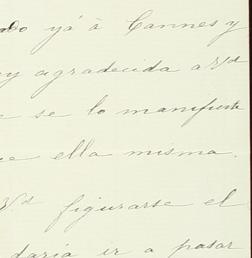 do yá à Cannes y
y agradecida a Vd
e se lo manifieste
ue ella misma.
Vd figurarse el
daria ir a pasar